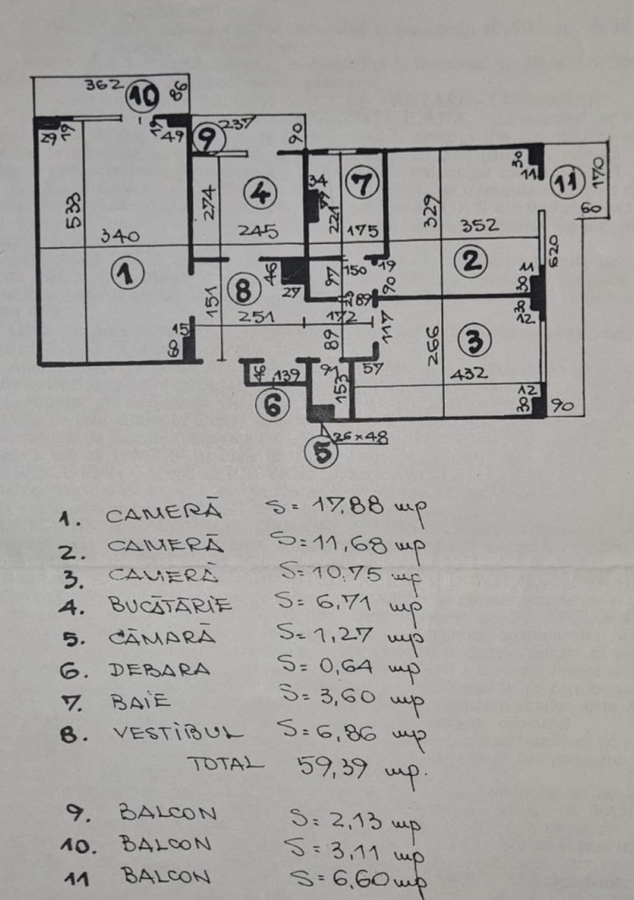 362
10
86
29
19
17
49
9
237
90
533
340
1
274
4
245
34
221
7
175
329
352
30
11
11
170
60
620
2
46
27
97
150
19
90
89
8
151
251
172
117
15
60
89
266
3
432
11
30
30
12
12
30
90
46
139
6
91
153
57
5
26×48
1. CAMERĂ S= 17,88 mp
2. CAMERĂ S= 11,68 mp
3. CAMERĂ S= 10,75 mp
4. BUCĂTĂRIE S= 6,71 mp
5. CĂMARĂ S= 1,27 mp
6. DEBARA S= 0,64 mp
7. BAIE S= 3,60 mp
8. VESTIBUL S= 6,86 mp
TOTAL 59,39 mp.
9. BALCON S= 2,13 mp
10. BALCON S= 3,11 mp
11 BALCON S= 6,60 mp